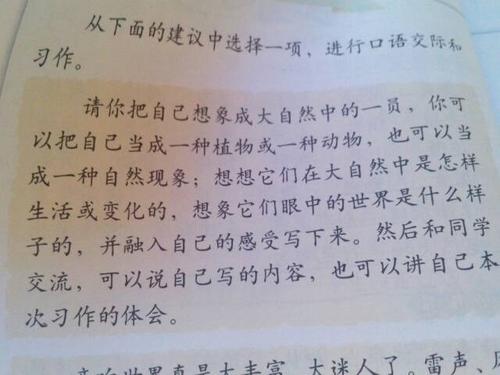 从下面的建议中选择一项，进行口语交际和
习作。
请你把自己想象成大自然中的一员，你可
以把自己当成一种植物或一种动物，也可以当
成一种自然现象；想想它们在大自然中是怎样
生活或变化的，想象它们眼中的世界是什么样
子的，并融入自己的感受写下来。然后和同学
交流，可以说自己写的内容，也可以讲自己本
次习作的体会。
音响世界真是太丰富、太迷人了。雷声、风